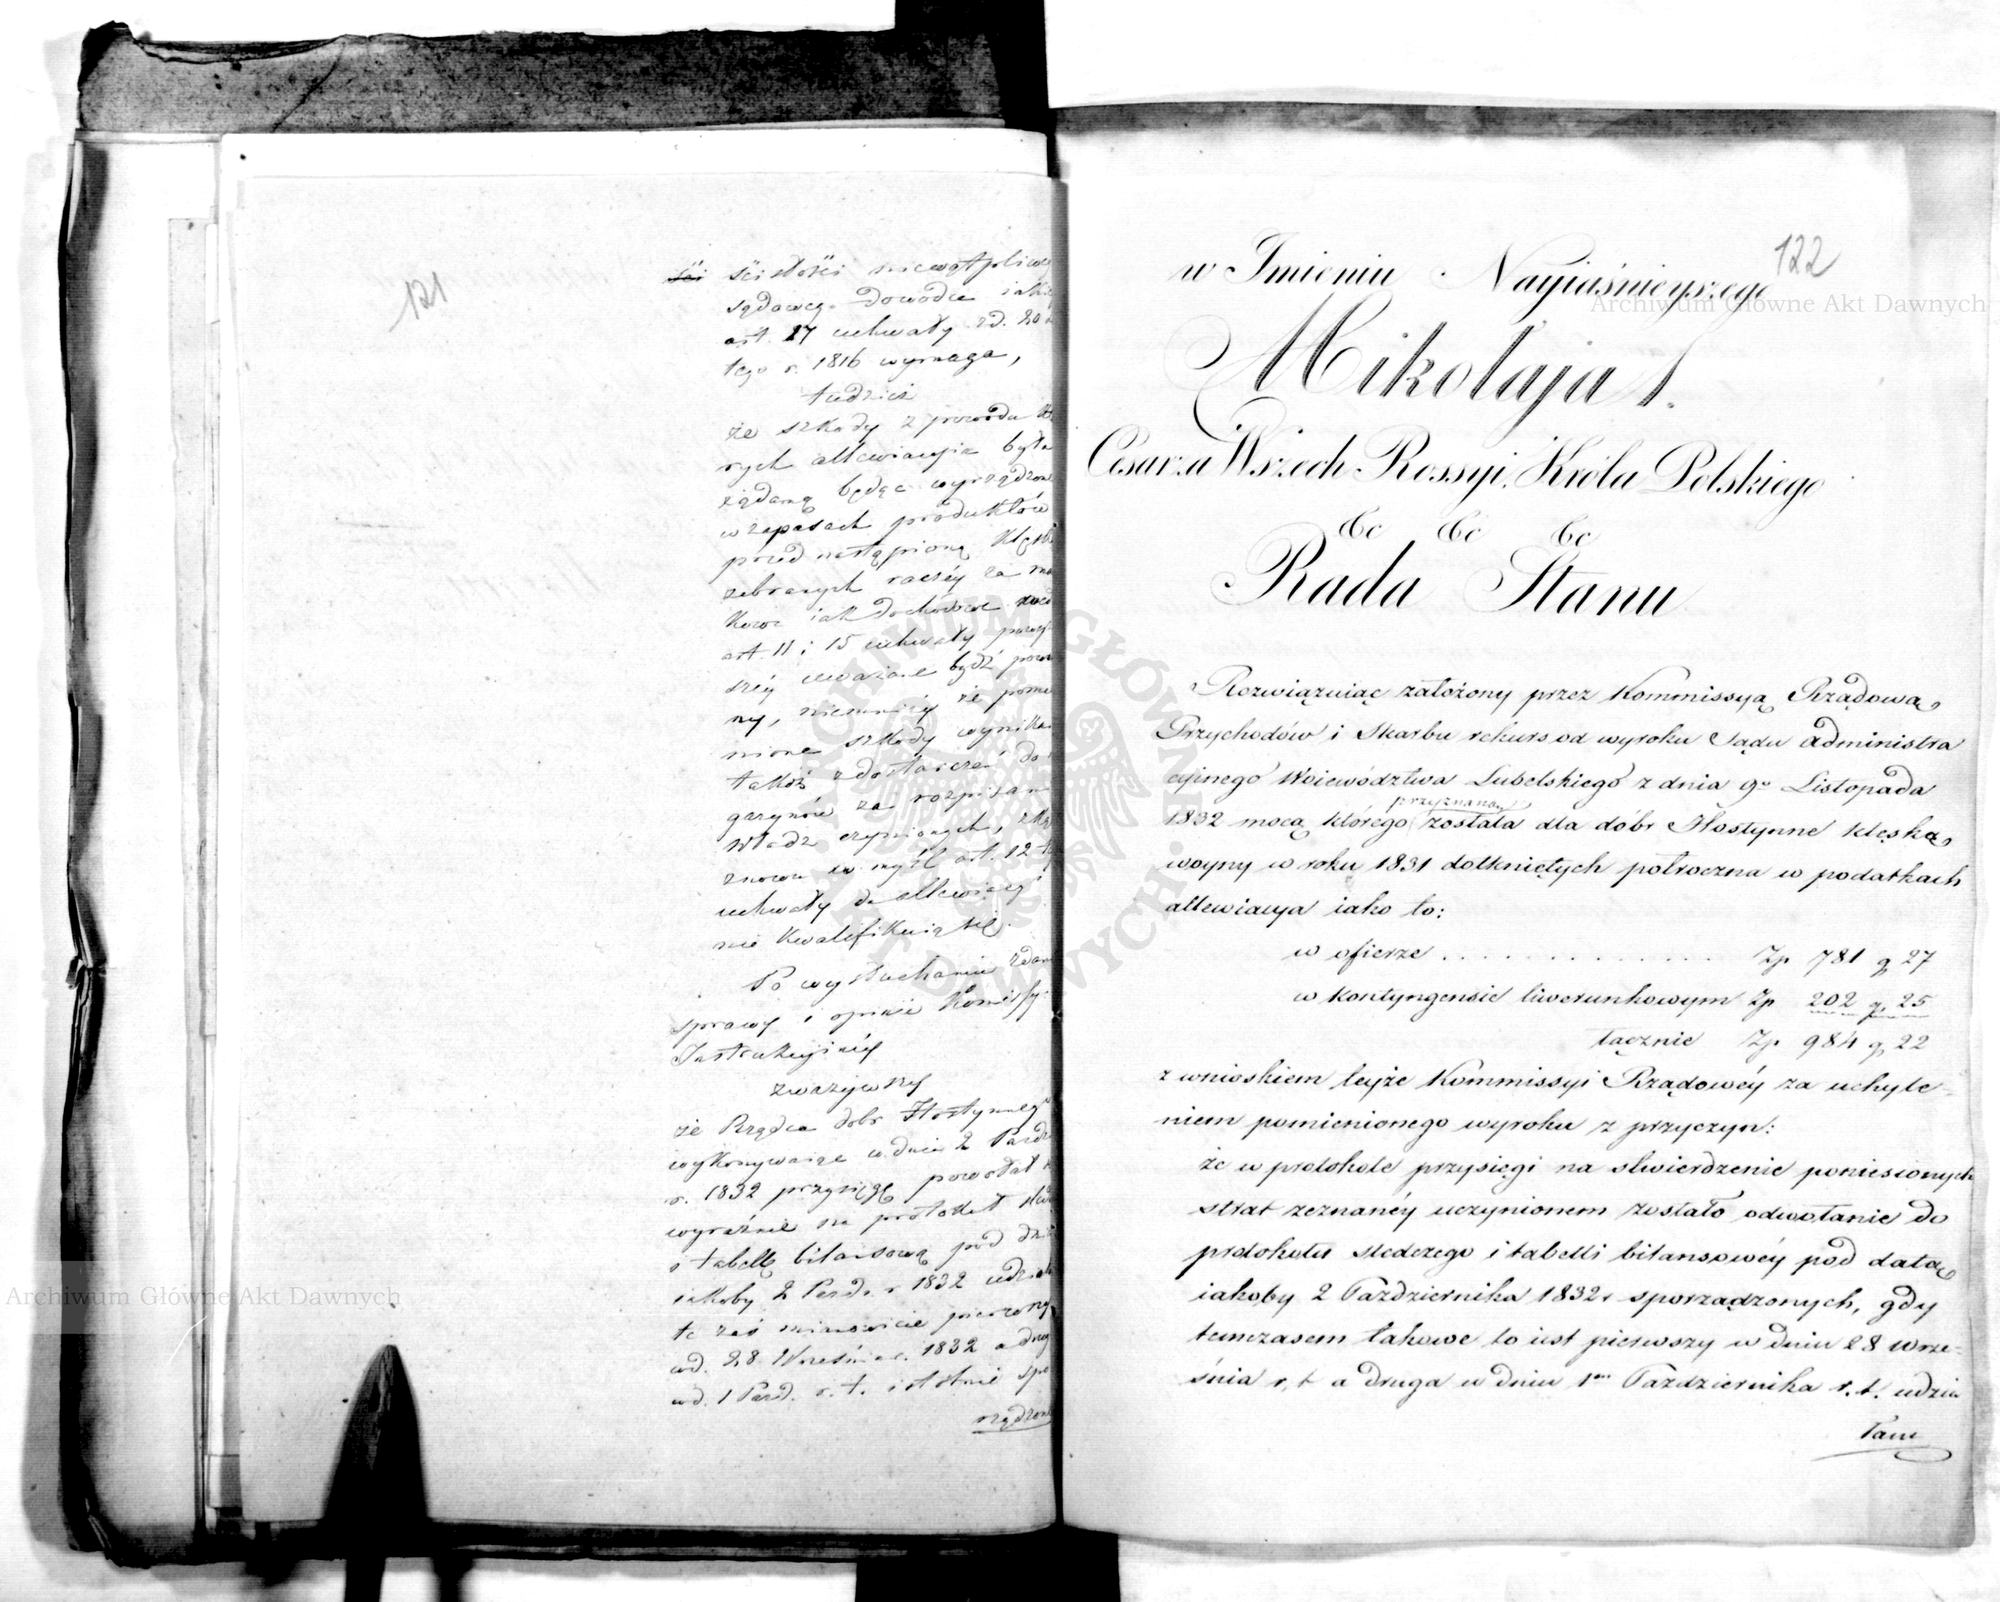 121
ści ściśłości niewątpliwe
sądoweg. dowodu iakie
art. 27 uchwały z d. 20
tego r. 1816 wymaga,
tudzież
że szkody z powodu któ
rych allewiacyia była
żądaną będąc wyrządzone
w zapasach produktów
przed nastąpioną klęską
zebranych raczéy za ma
art. 11 i 15 uchwały powyż
széy uważane bydź powin
ny, niemniéy że pomie
nione szkody wynikłe
także z dostarczeń do
gazynów za rozpisan
władz czynionych,
znowu w myśl art. 12 t
uchwały do allewiacyi
nie kwalifikuią się.
Po wysłuchaniu zdania
sprawy i opinii Komissyi
Instrukcyinéy
zważywszy
że Rządca dobr Hostynnego
wykonywaiąc w dniu 2 Paźdz
r. 1832 przysięgę powołał
wyraźnie na protokół śled
i tabellę bilansową pod dniem
iakoby 2 Paźd. r 1832 udziała
te zaś mianowicie pierwszy
od. 28 Września r. 1832 a drug
od. 1 Paźd. r. t. istotnie spo
rządzone
122
w Imieniu Nayiaśnieyszego
Mikołaja I.
Cesarza Wszech Rossyi, Króla Polskiego
&c &c &c
Rada Stanu
Rozwiązuiąc założony przez Kommissyą Rządową
Przychodów i Skarbu rekurs od wyroku Sądu administra
cyinego Woiewództwa Lubelskiego z dnia 9o Listopada
przyznaną
1832 mocą którego została dla dóbr Hostynne klęską
woyny w roku 1831 dotkniętych półroczna w podatkach
allewiacya iako to:
w ofierze . . . . . . . . . . . . . Zp 781 g 27
w kontyngensie liwerunkowym Zp 202 g. 25
łącznie Zp. 984 g, 22
z wnioskiem teyże Kommissyi Rządowéy za uchyle-
niem pomienionego wyroku z przyczyn:
że w protokole przysięgi na stwierdzenie poniesionych
strat zeznanéy uczynionem zostało odwołanie do
protokołu śledczego i tabelli bilansowéy pod datą
iakoby 2 Października 1832 r sporządzonych, gdy
temczasem takowe to iest pierwszy w dniu 28 Wrze-
śnia r, t a druga w dniu 1m Października r. t. udzia
łane
Archiwum Główne Akt Dawnych
Archiwum Główne Akt Dawnych
ARCHIWUM GŁÓWNE AKT DAWNYCH